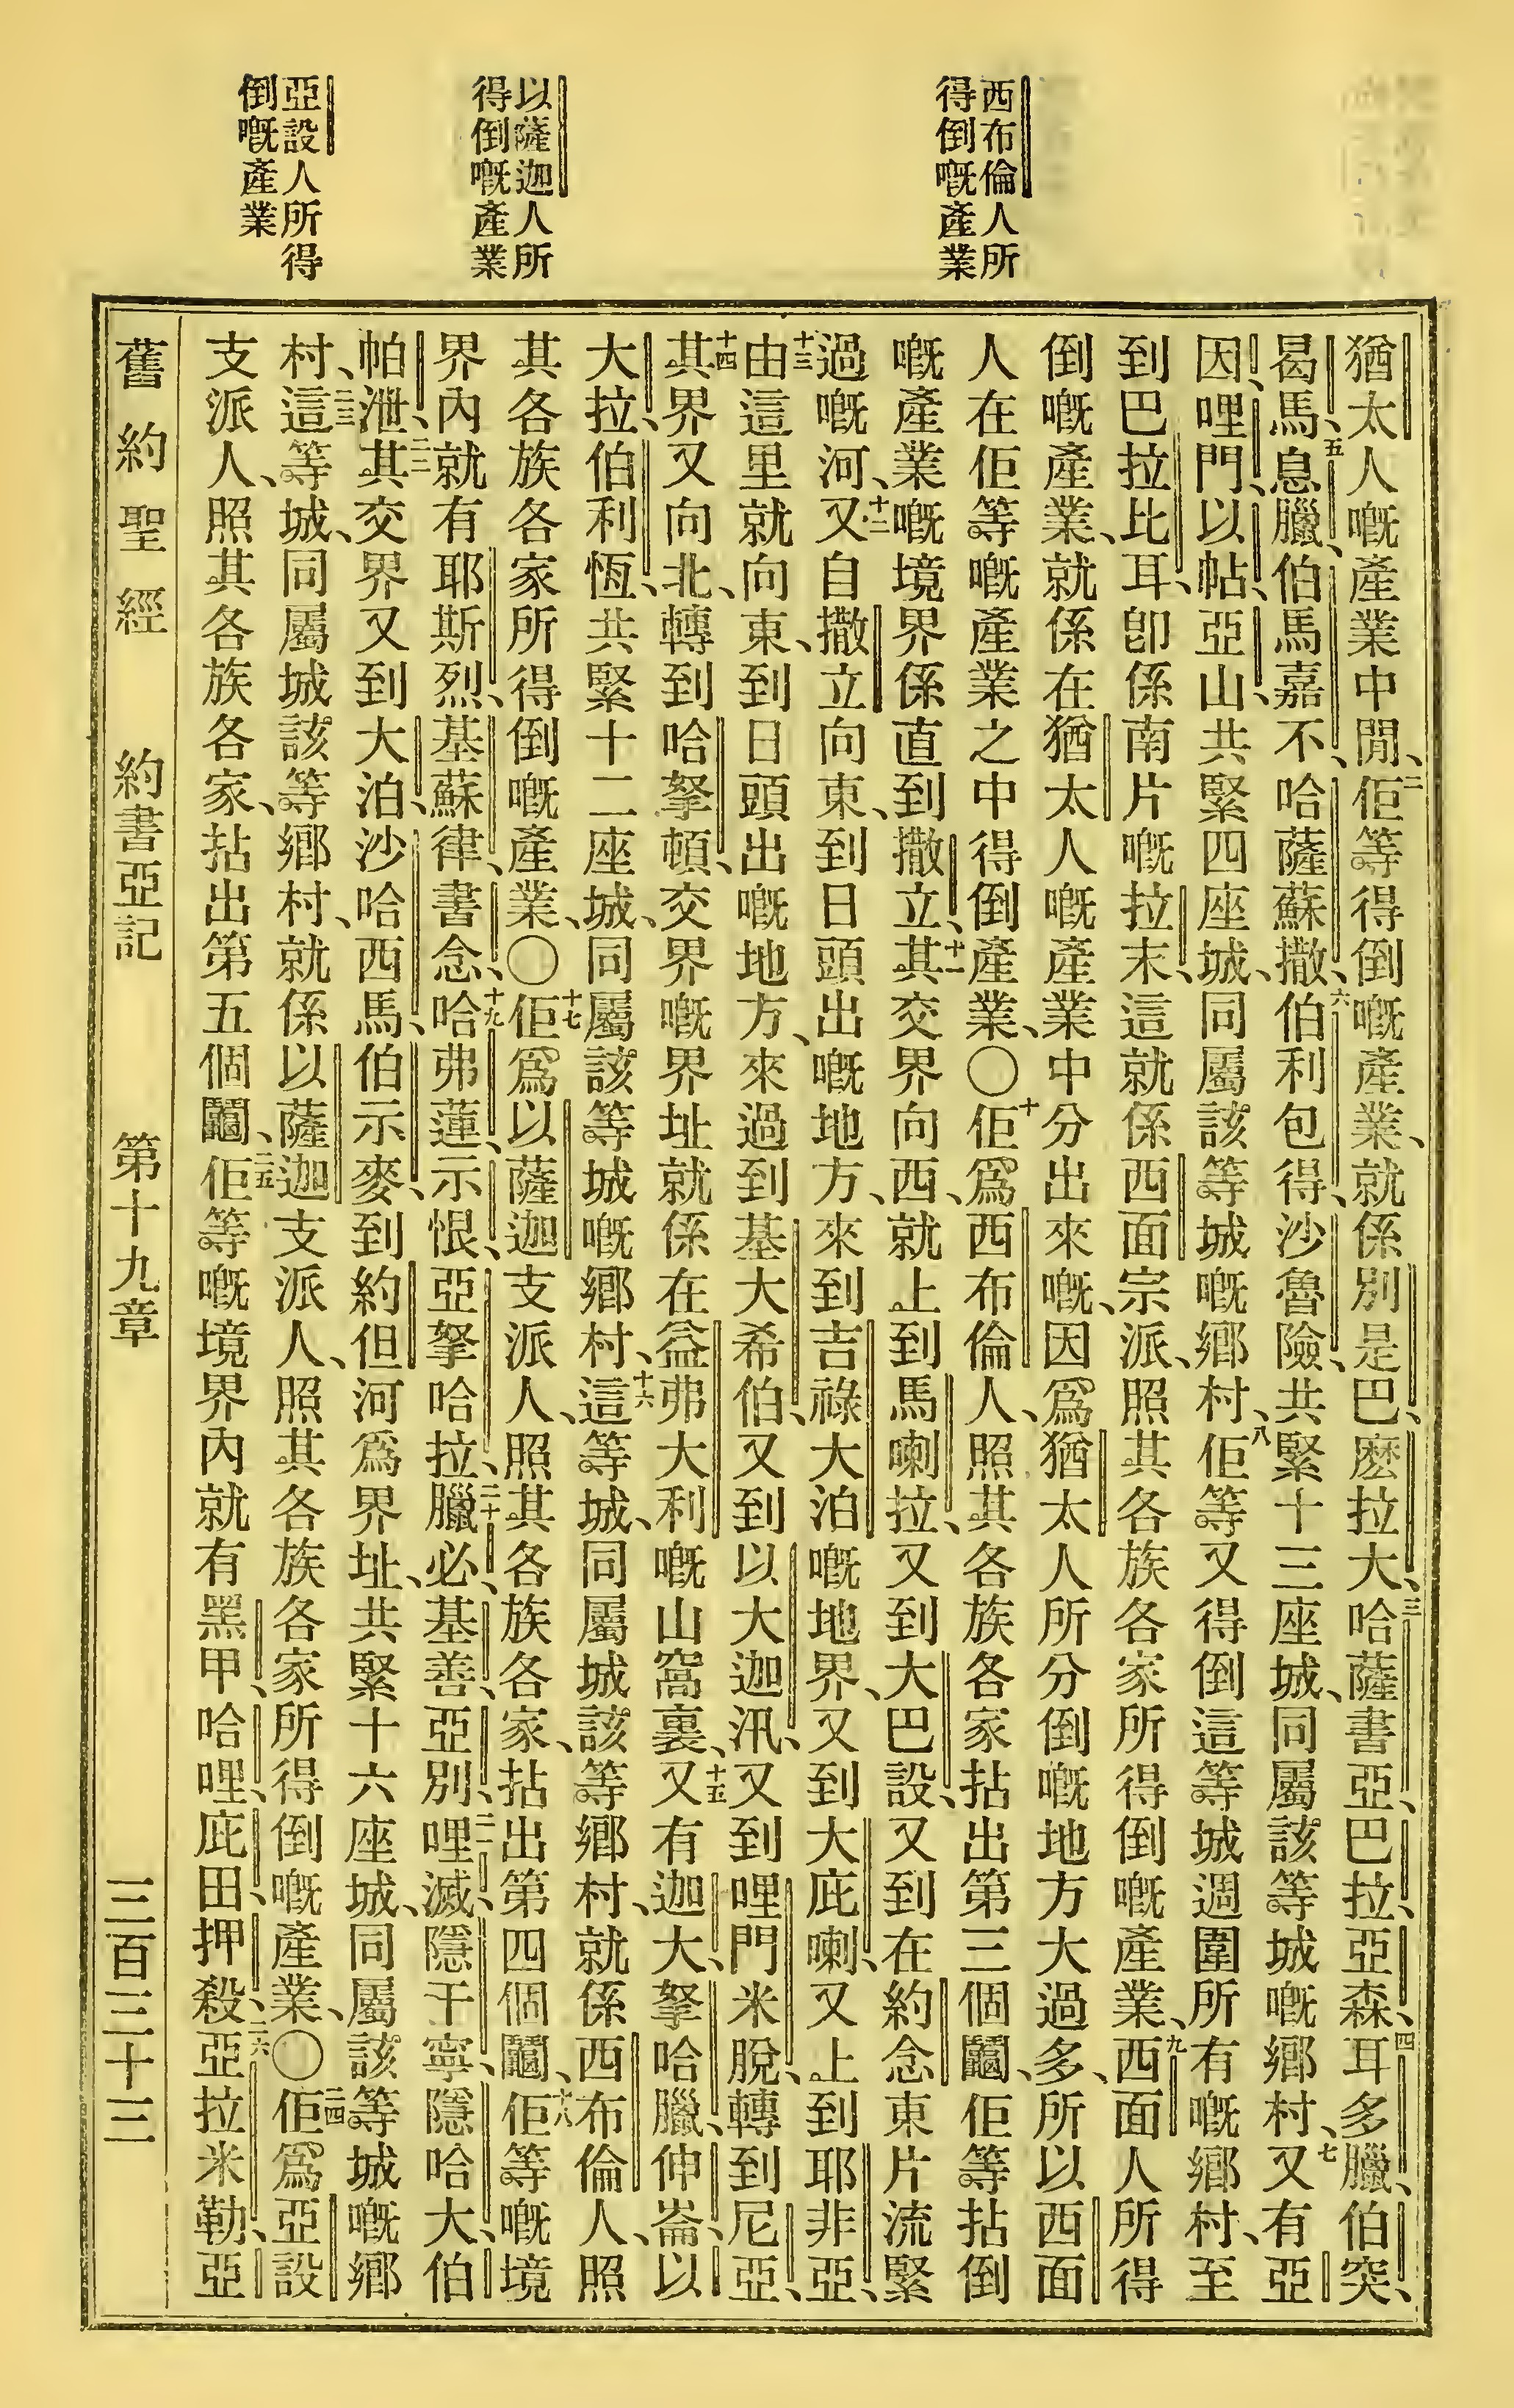 西布倫人所
得倒嘅產業
以薩迦人所
得倒嘅產業
亞設人所得
倒嘅產業
猶太人嘅產業中間、二佢等得倒嘅產業、就係別是巴、麽拉大、三哈薩書亞、巴拉、亞森、四耳多臘、伯突、
曷馬、五息臘、伯馬嘉不、哈薩蘇撒、六伯利包得、沙魯險、共緊十三座城、同屬該等城嘅鄉村、七又有亞
因、哩門、以帖、亞山、共緊四座城、同屬該等城嘅鄉村、八佢等又得倒這等城週圍所有嘅鄉村、至
到巴拉比耳、卽係南片嘅拉末、這就係西面宗派、照其各族各家所得倒嘅產業、九西面人所得
倒嘅產業、就係在猶太人嘅產業中分出來嘅、因爲猶太人所分倒嘅地方大過多、所以西面
人在佢等嘅產業之中得倒產業、〇十佢爲西布倫人、照其各族各家拈出第三個鬮、佢等拈倒
嘅產業嘅境界係直到撒立、十一其交界向西、就上到馬喇拉、又到大巴設、又到在約念東片流緊
過嘅河、十二又自撒立向東、到日頭出嘅地方、來到吉祿大泊嘅地界、又到大庇喇、又上到耶非亞、
十三由這里就向東、到日頭出嘅地方、來過到基大希伯、又到以大迦汛、又到哩門米脫、轉到尼亞、
十四其界又向北、轉到哈拏頓、交界嘅界址就係在益弗大利嘅山窩裏、十五又有迦大、拏哈臘、伸崙、以
大拉、伯利恆、共緊十二座城、同屬該等城嘅鄉村、十六這等城、同屬城該等鄉村、就係西布倫人、照
其各族各家所得倒嘅產業、〇十七佢爲以薩迦支派人、照其各族各家、拈出第四個鬮、十八佢等嘅境
界內就有耶斯烈、基蘇律、書念、十九哈弗蓮、示恨、亞拏哈拉、二十臘必、基善、亞別、二一哩滅、隱干寧、隱哈大、伯
帕泄、二二其交界又到大泊、沙哈西馬、伯示麥、到約但河爲界址、共緊十六座城、同屬該等城嘅鄉
村、二三這等城、同屬城該等鄉村、就係以薩迦支派人、照其各族各家所得倒嘅產業、〇二四佢爲亞設
支派人、照其各族各家、拈出第五個鬮、二五佢等嘅境界內就有黑甲、哈哩、庇田、押殺、二六亞拉米勒、亞
舊約聖經　約書亞記　第十九章　三百三十三